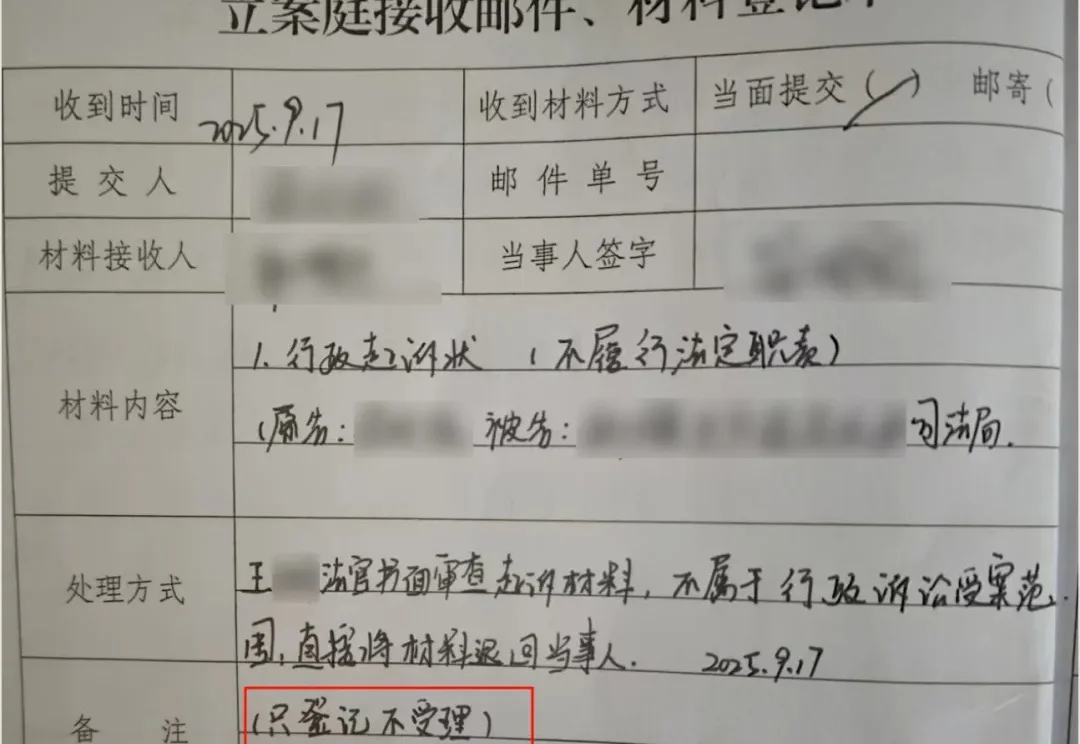 立案庭接收邮件、材料登记
收到时间 2025.9.17 收到材料方式 当面提交(✓) 邮寄(
提交人 邮件单号
材料接收人 当事人签字
材料内容
1.行政起诉状 (不履行法定职责)
(原告: 被告: 司法局.
处理方式
王 法官书面审查起诉材料,不属于行政诉讼受案范
围,直接将材料退回当事人. 2025.9.17
备注 (只登记不受理)